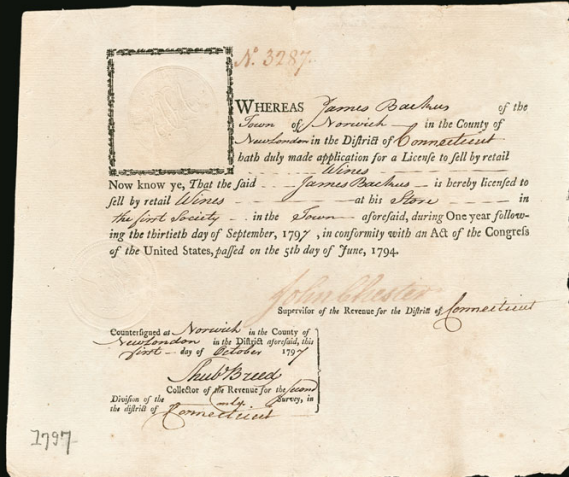 N. 3287.
WHEREAS James Backus of the
Town of Norwich in the County of
New London in the District of Connecticut
hath duly made application for a License to sell by retail
Wines
Now know ye, That the said James Backus is hereby licensed to
sell by retail Wines at his Store in
the first Society in the Town aforesaid, during One year follow-
ing the thirtieth day of September, 1797, in conformity with an Act of the Congress
of the United States, passed on the 5th day of June, 1794.
John Chester
Supervisor of the Revenue for the District of Connecticut
Countersigned at Norwich in the County of
New London in the District aforesaid, this
first day of October 1797
Shub Breed
Collector of the Revenue for the second
Division of the only Survey, in
the district of Connecticut
1797